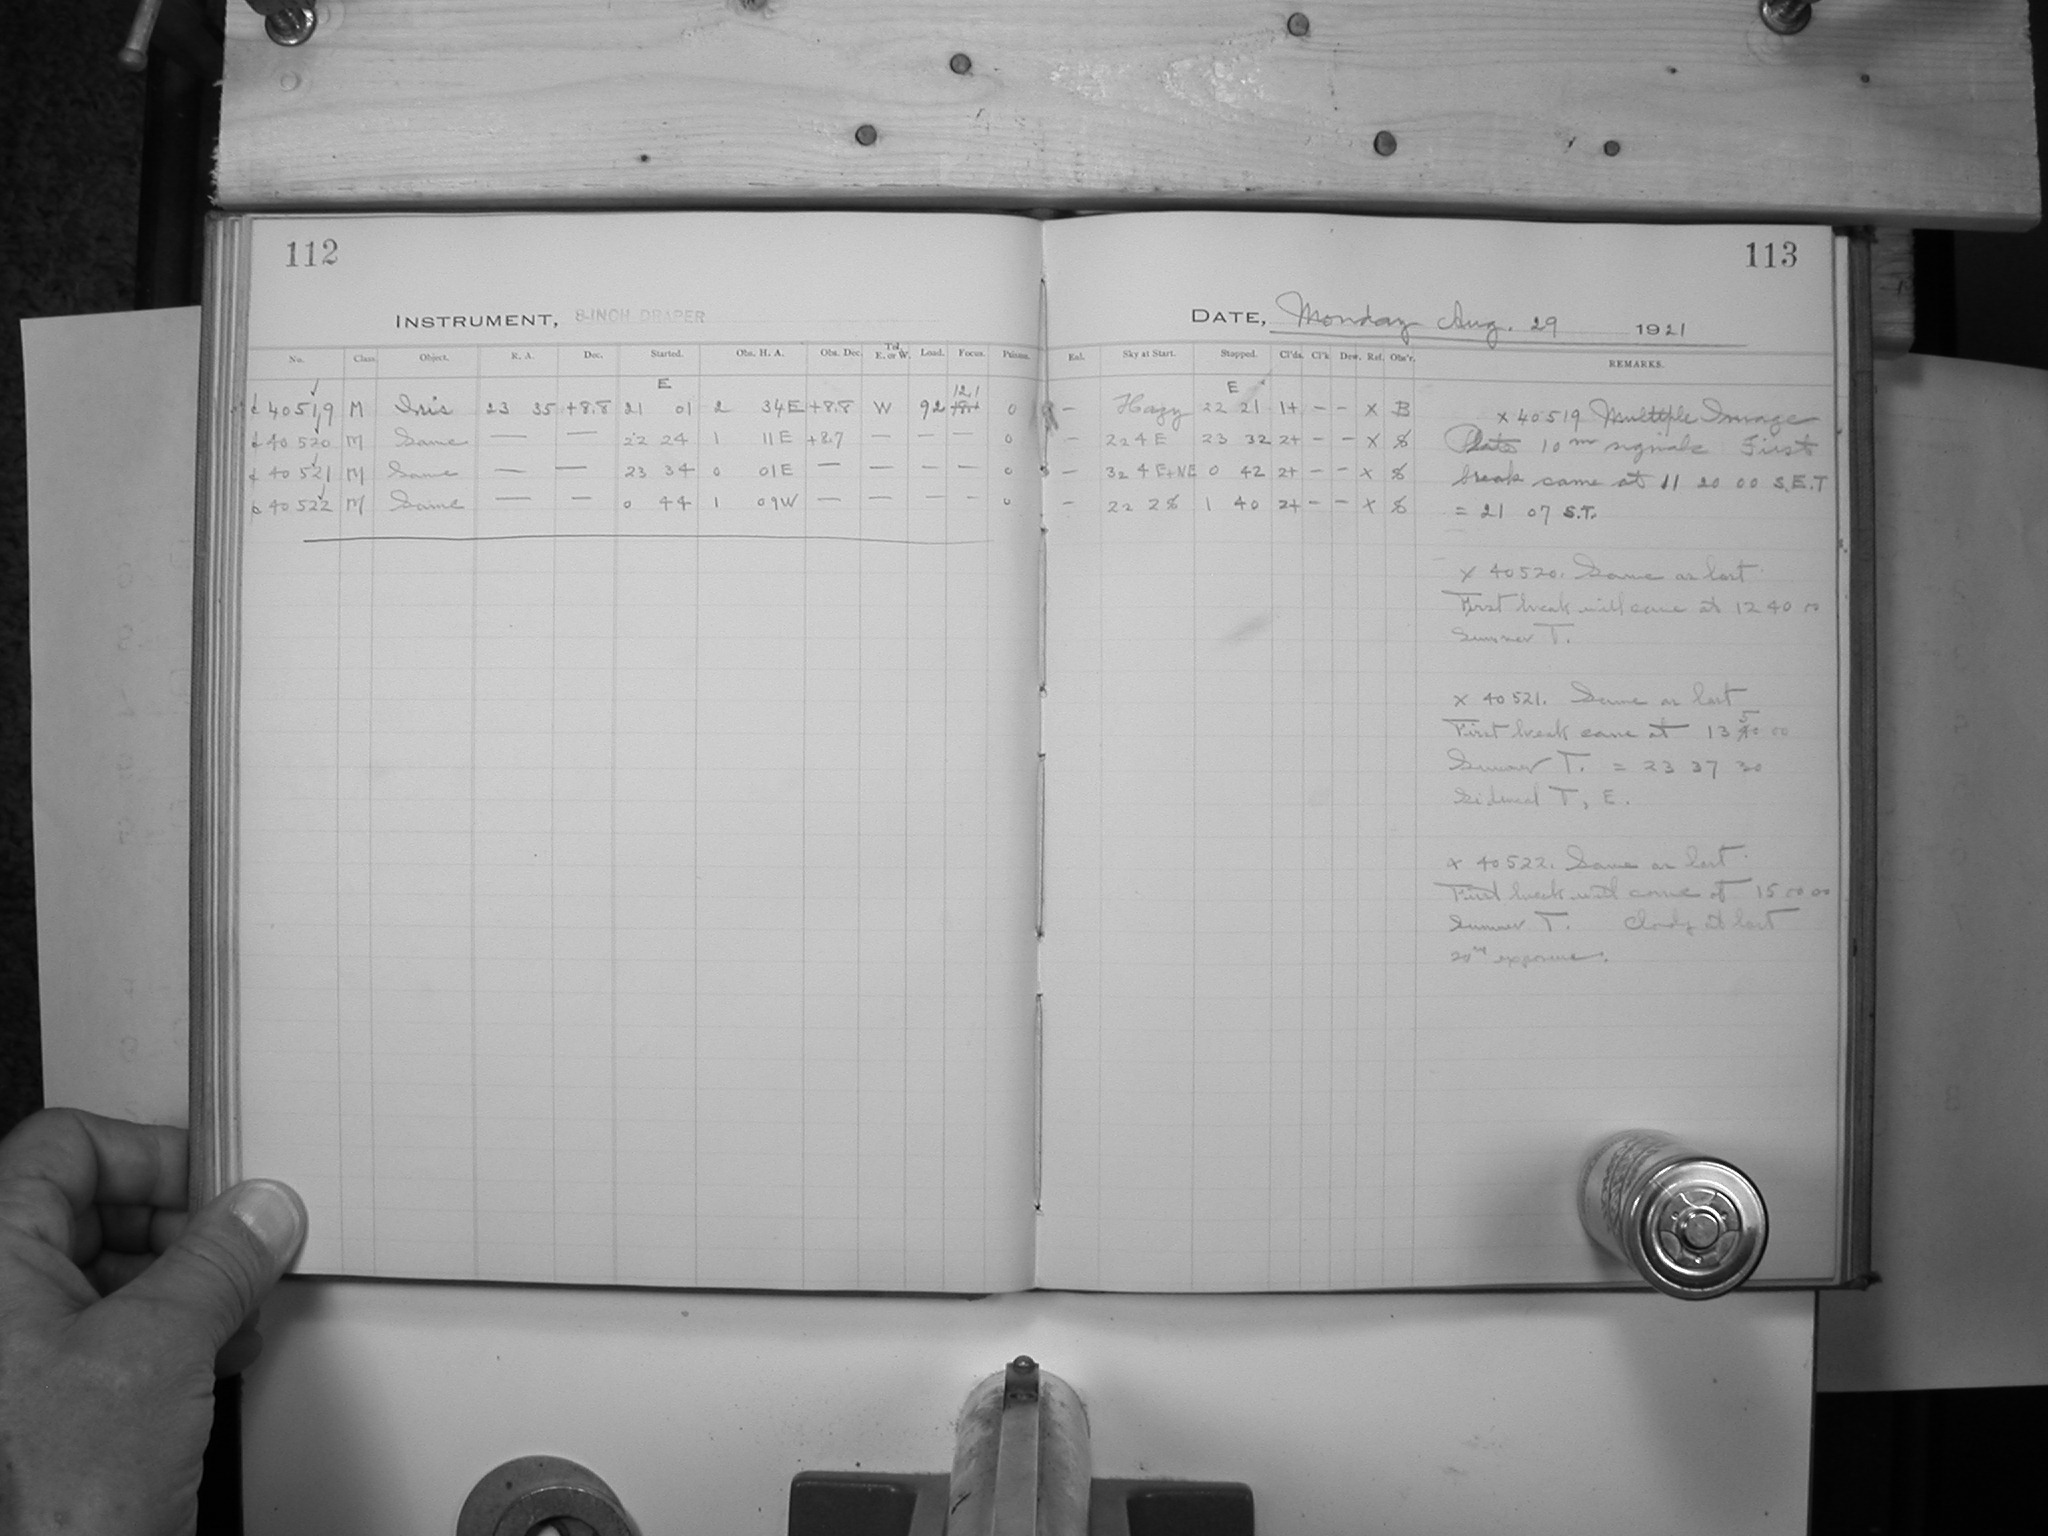 112
113
INSTRUMENT, 8-INCH DRAPER
DATE, Monday Aug. 29 1921
No. Class Object. R. A. Dec. Started. Obs. H. A. Obs. Dec. Tel. E. or W. Load. Focus. Prisms. Enl. Sky at Start. Stopped. Cl'ds. Cl'k Dew. Ref. Obs'r. REMARKS.
E E
40519 M Iris 23 35 +8.8 21 01 2 34E +8.8 W 92 12.1 0 — Hazy 22 21 1+ — — X B
40520 M Same — — 22 24 1 11E +8.7 — — — 0 — 224E 23 32 2+ — — X
40521 M Same — — 23 34 0 01E — — — — 0 — 324E+NE 0 42 2+ — — X
40522 M Same — — 0 44 1 09W — — — — 0 — 1 40 2+ — — X
X 40519 Multiple Image
Plate 10m signals First
break came at 11 20 00 S.E.T
= 21 07 S.T.
X 40520. Same as last
First break will come at 12 40 00
Summer T.
X 40521. Same as last
First break came at 13 50 00
Summer T. = 23 37 30
Sidereal T, E.
X 40522. Same as last
First break will come at 15 00 00
Summer T. Cloudy at last
exposure.